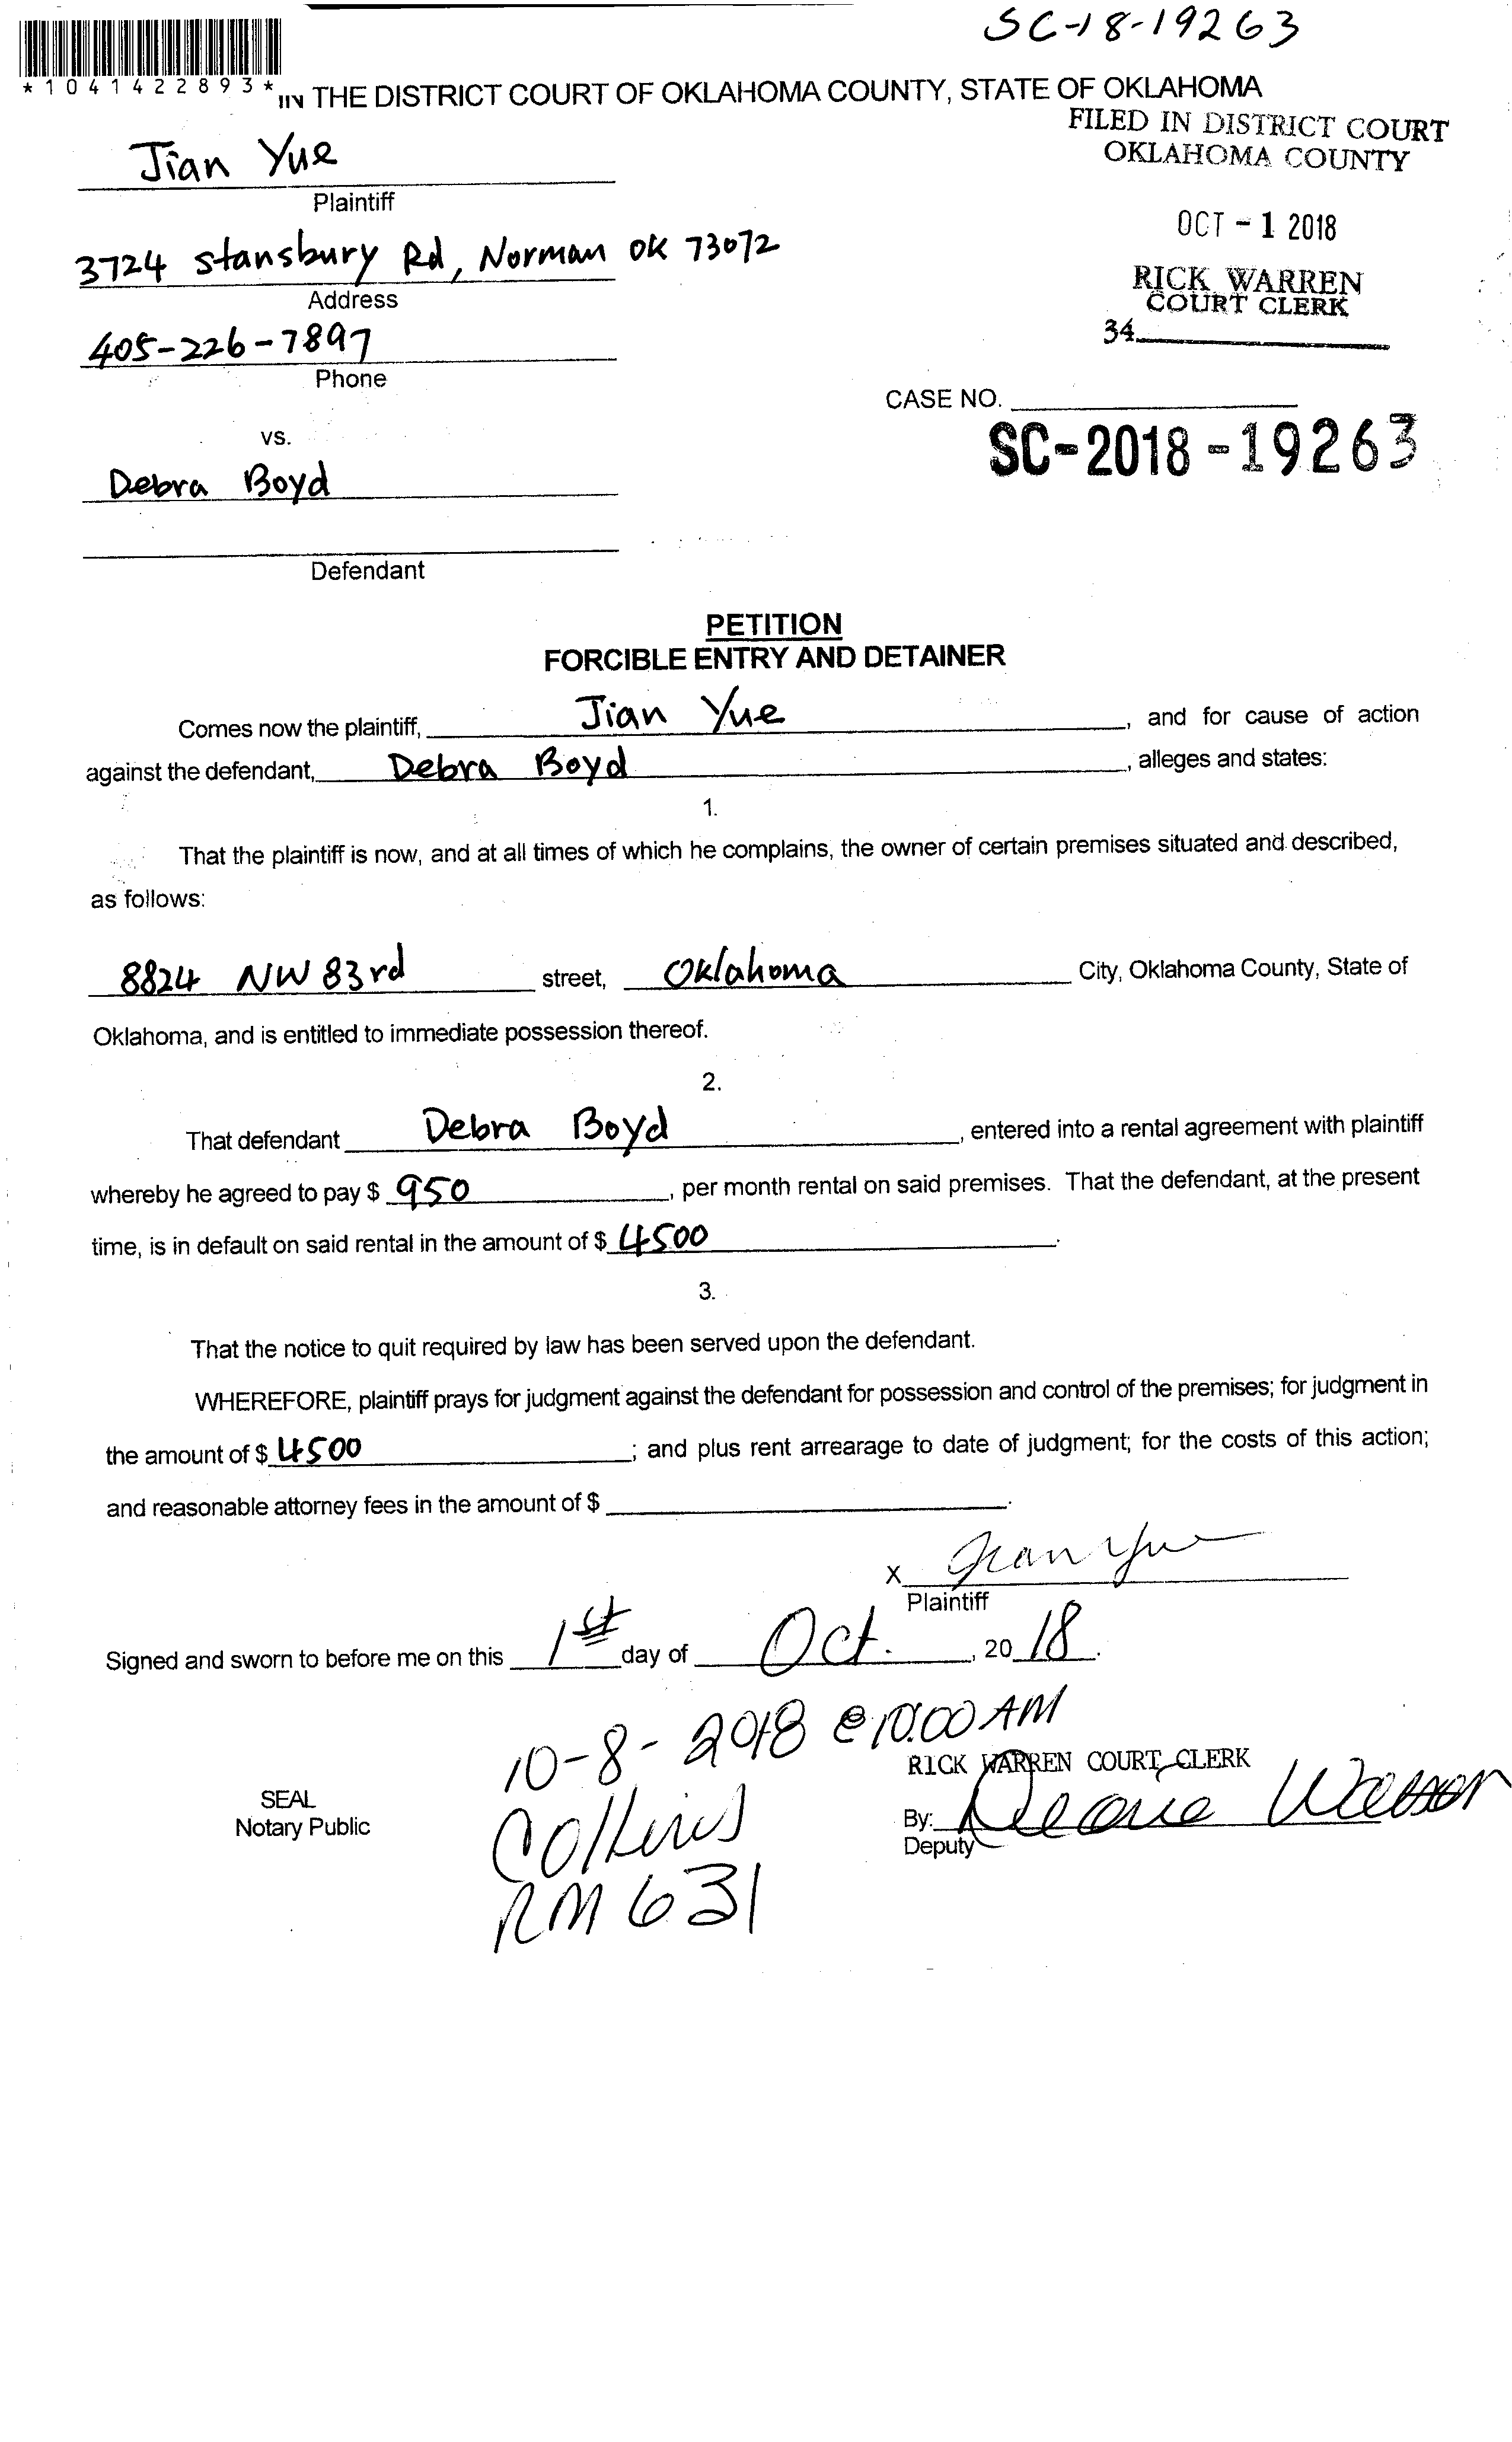 SC-18-19263
*1041422893*
IN THE DISTRICT COURT OF OKLAHOMA COUNTY, STATE OF OKLAHOMA
FILED IN DISTRICT COURT
OKLAHOMA COUNTY
Jian Yue
Plaintiff
OCT - 1 2018
3724 Stansbury Rd, Norman OK 73072
Address
RICK WARREN
COURT CLERK
34
405-226-7897
Phone
CASE NO.
SC-2018-19263
vs.
Debra Boyd
Defendant
PETITION
FORCIBLE ENTRY AND DETAINER
Comes now the plaintiff, Jian Yue, and for cause of action
against the defendant, Debra Boyd, alleges and states:
1.
That the plaintiff is now, and at all times of which he complains, the owner of certain premises situated and described,
as follows:
8824 NW 83rd street, Oklahoma City, Oklahoma County, State of
Oklahoma, and is entitled to immediate possession thereof.
2.
That defendant Debra Boyd, entered into a rental agreement with plaintiff
whereby he agreed to pay $ 950, per month rental on said premises. That the defendant, at the present
time, is in default on said rental in the amount of $ 4500.
3.
That the notice to quit required by law has been served upon the defendant.
WHEREFORE, plaintiff prays for judgment against the defendant for possession and control of the premises; for judgment in
the amount of $ 4500; and plus rent arrearage to date of judgment; for the costs of this action;
and reasonable attorney fees in the amount of $ .
X Jian Yue
Plaintiff
Signed and sworn to before me on this 1st day of Oct., 2018.
10-8-2018 @ 10:00 AM
RICK WARREN COURT CLERK
SEAL
Notary Public
Collins
By:
Deputy
RM 631